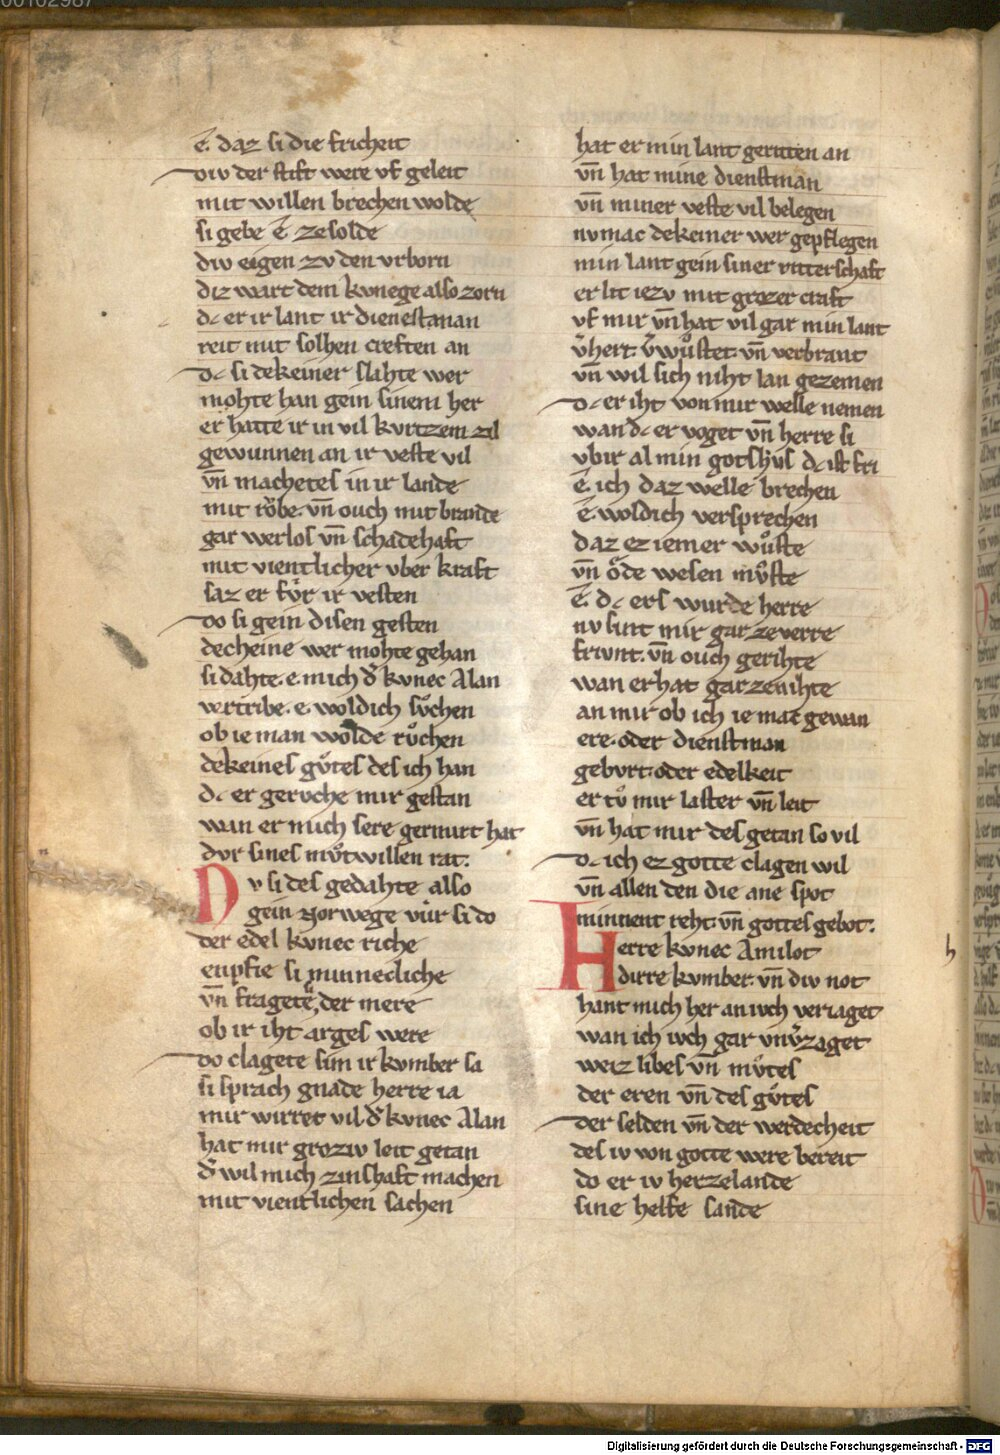 e. daz si die friheit
div der stift were vf geleit
mit willen brechen wolde
si gebe e zesolde
div eigen zv den vrborn
diz wart dem kvnege also zorn
dc er ir lant ir dienestman
reit mit solhen creften an
dc si dekeiner slahte wer
mohte han gein sinem her
er hatte ir in vil kvrtzem zil
gewunnen an ir veste vil
vn̄ machetes in ir lande
mit roͮbe. vn̄ ouch mit brande
gar werlos vn̄ schadehaft
mit vientlicher vber kraft
saz er fv̊r ir vesten
do si gein disen gesten
decheine wer mohte gehan
si dahte. e. mich d͛ kvnec Alan
vertribe. e. woldich sv̊chen
ob ie man wolde rv̊chen
dekeines gv̊tes des ich han
dc er gervche mir gestan
wan er mich sere gernirt hat
dvr sines mv̊twillen rat:
Dv si des gedahte also
gein Norwege vůr si do
der edel kvnec riche
enpfie si minnecliche
vn̄ fragete der mere
ob ir iht arges were
do clagete sim ir kvmber sa
si sprach gnade herre ia
mir wirret vil d͛ kvnec Alan
hat mir groziv leit getan
d͛ wil mich zinshaft machen
mit vientlichen sachen
hat er min lant geritten an
vn̄ hat mine dienstman
vn̄ miner veste vil belegen
nv mac dekeiner wer gepflegen
min lant gein siner ritterschaft
er lit iezv mit grozer craft
vf mir vn̄ hat vil gar min lant
v͛hert. v͛wůstet. vn̄ verbrant
vn̄ wil sich niht lan gezemen
dc er iht von mir welle nemen
wan dc er voget vn̄ herre si
vbir al min gotshvs dc ist fri
e. ich daz welle brechen
e. woldich versprechen
daz ez iemer wůste
vn̄ o̊de wesen mv̊ste
e. dc ers wurde herre
nv sint mir gar zeverre
frivnt. vn̄ ouch gerihte
wan er hat gar zenihte
an mir ob ich ie mac gewan
ere. oder dienstman
gebvrt. oder edelkeit
er tv̊ mir laster vn̄ leit
vn̄ hat mir des getan so vil
dc ich ez gotte clagen wil
vn̄ allen den die ane spot
minnent reht. vn̄ gottes gebot:
Herre kvnec Amilot
dirre kvmber. vn̄ div not
hant mich her an ivch veriaget
wan ich ivch gar vnv͛zaget
weiz libes vn̄ mv̊tes
der eren vn̄ des gv̊tes
der selden vn̄ der werdecheit
des iv von gotte were bereit
do er iv herzelande
sine helfe sande
Digitalisierung gefördert durch die Deutsche Forschungsgemeinschaft - DFG